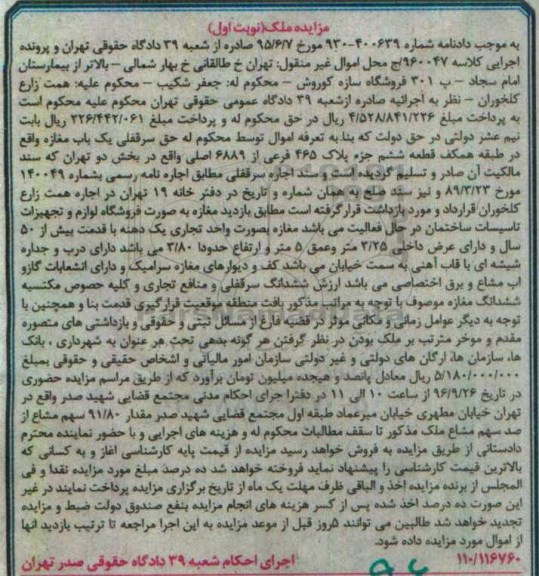 مزایده ملک(نوبت اول)
به موجب دادنامه شماره ۴۰۰۶۳۹-۹۳۰ مورخ ۹۵/۶/۷ صادره از شعبه ۳۹ دادگاه حقوقی تهران و پرونده
اجرایی کلاسه ۹۶۰۰۴۷/ج محل اموال غیر منقول: تهران خ طالقانی خ بهار شمالی – بالاتر از بیمارستان
امام سجاد – پ ۳۰۱ فروشگاه سازه کوروش – محکوم له: جعفر شکیب – محکوم علیه: همت زارع
کلخوران – نظر به اجرائیه صادره ازشعبه ۳۹ دادگاه عمومی حقوقی تهران محکوم علیه محکوم است
به پرداخت مبلغ ۴/۵۲۸/۸۴۱/۲۲۶ ریال در حق محکوم له و پرداخت مبلغ ۲۲۶/۴۴۲/۰۶۱ ریال بابت
نیم عشر دولتی در حق دولت که بنا به تعرفه اموال توسط محکوم له حق سرقفلی یک باب مغازه واقع
در طبقه همکف قطعه ششم جزء پلاک ۴۶۵ فرعی از ۶۸۸۹ اصلی واقع در بخش دو تهران که سند
مالکیت آن صادر و تسلیم گردیده است و سند اجاره سرقفلی مطابق اجاره نامه رسمی بشماره ۱۴۰۰۴۹
مورخ ۸۹/۳/۲۳ و نیز سند صلح به همان شماره و تاریخ در دفتر خانه ۱۹ تهران در اجاره همت زارع
کلخوران قرارداد و مورد بازداشت قرار گرفته است مطابق بازدید مغازه به صورت فروشگاه لوازم و تجهیزات
تاسیسات ساختمان در حال فعالیت می باشد مغازه بصورت واحد تجاری یک دهنه با قدمت بیش از ۵۰
سال و دارای عرض داخلی ۳/۲۵ متر وعمق ۵ متر و ارتفاع حدودا ۳/۸۰ می باشد دارای درب و جداره
شیشه ای با قاب آهنی به سمت خیابان می باشد کف و دیوارهای مغازه سرامیک و دارای انشعابات گازو
اب مشاع و برق اختصاصی می باشد ارزش ششدانگ سرقفلی و منافع تجاری و کلیه حصوص مکتسبه
ششدانگ مغازه موصوف با توجه به مراتب مذکور بافت منطقه موقعیت قرارگیری قدمت بنا و همچنین با
توجه به دیگر عوامل زمانی و مکانی موثر در قضیه فارغ از مسائل ثبتی و حقوقی و بازداشتی های متصوره
مقدم و موخر مترتب بر ملک بودن در نظر گرفتن هر گونه بدهی تحت هر عنوان به شهرداری ، بانک
ها، سازمان ها، ارگان های دولتی و غیر دولتی سازمان امور مالیاتی و اشخاص حقیقی و حقوقی بمبلغ
۵/۱۸۰/۰۰۰/۰۰۰ ریال معادل پانصد و هیجده میلیون تومان برآورد که از طریق مراسم مزایده حضوری
در تاریخ ۹۶/۹/۲۶ از ساعت ۱۰ الی ۱۱ در دفترا جرای احکام مدنی مجتمع قضایی شهید صدر واقع در
تهران خیابان مطهری خیابان میرعماد طبقه اول مجتمع قضایی شهید صدر مقدار ۹۱/۸۰ سهم مشاع از
صد سهم مشاع ملک مذکور تا سقف مطالبات محکوم له و هزینه های اجرایی و با حضور نماینده محترم
دادستانی از طریق مزایده به فروش خواهد رسید مزایده از قیمت پایه کارشناسی اغاز و به کسانی که
بالاترین قیمت کارشناسی را پیشنهاد نماید فروخته خواهد شد ده درصد مبلغ مورد مزایده نقدا و فی
المجلس از برنده مزایده اخذ و الباقی ظرف مهلت یک ماه از تاریخ برگزاری مزایده پرداخت نمایند در غیر
این صورت ده درصد اخذ شده پس از کسر هزینه های انجام مزایده بنفع صندوق دولت ضبط و مزایده
تجدید خواهد شد طالبین می توانند ۵روز قبل از موعد مزایده به این اجرا مراجعه تا ترتیب بازدید انها
از اموال مورد مزایده داده شود.
۱۱۰/۱۱۶۷۶۰ اجرای احکام شعبه ۳۹ دادگاه حقوقی صدر تهران